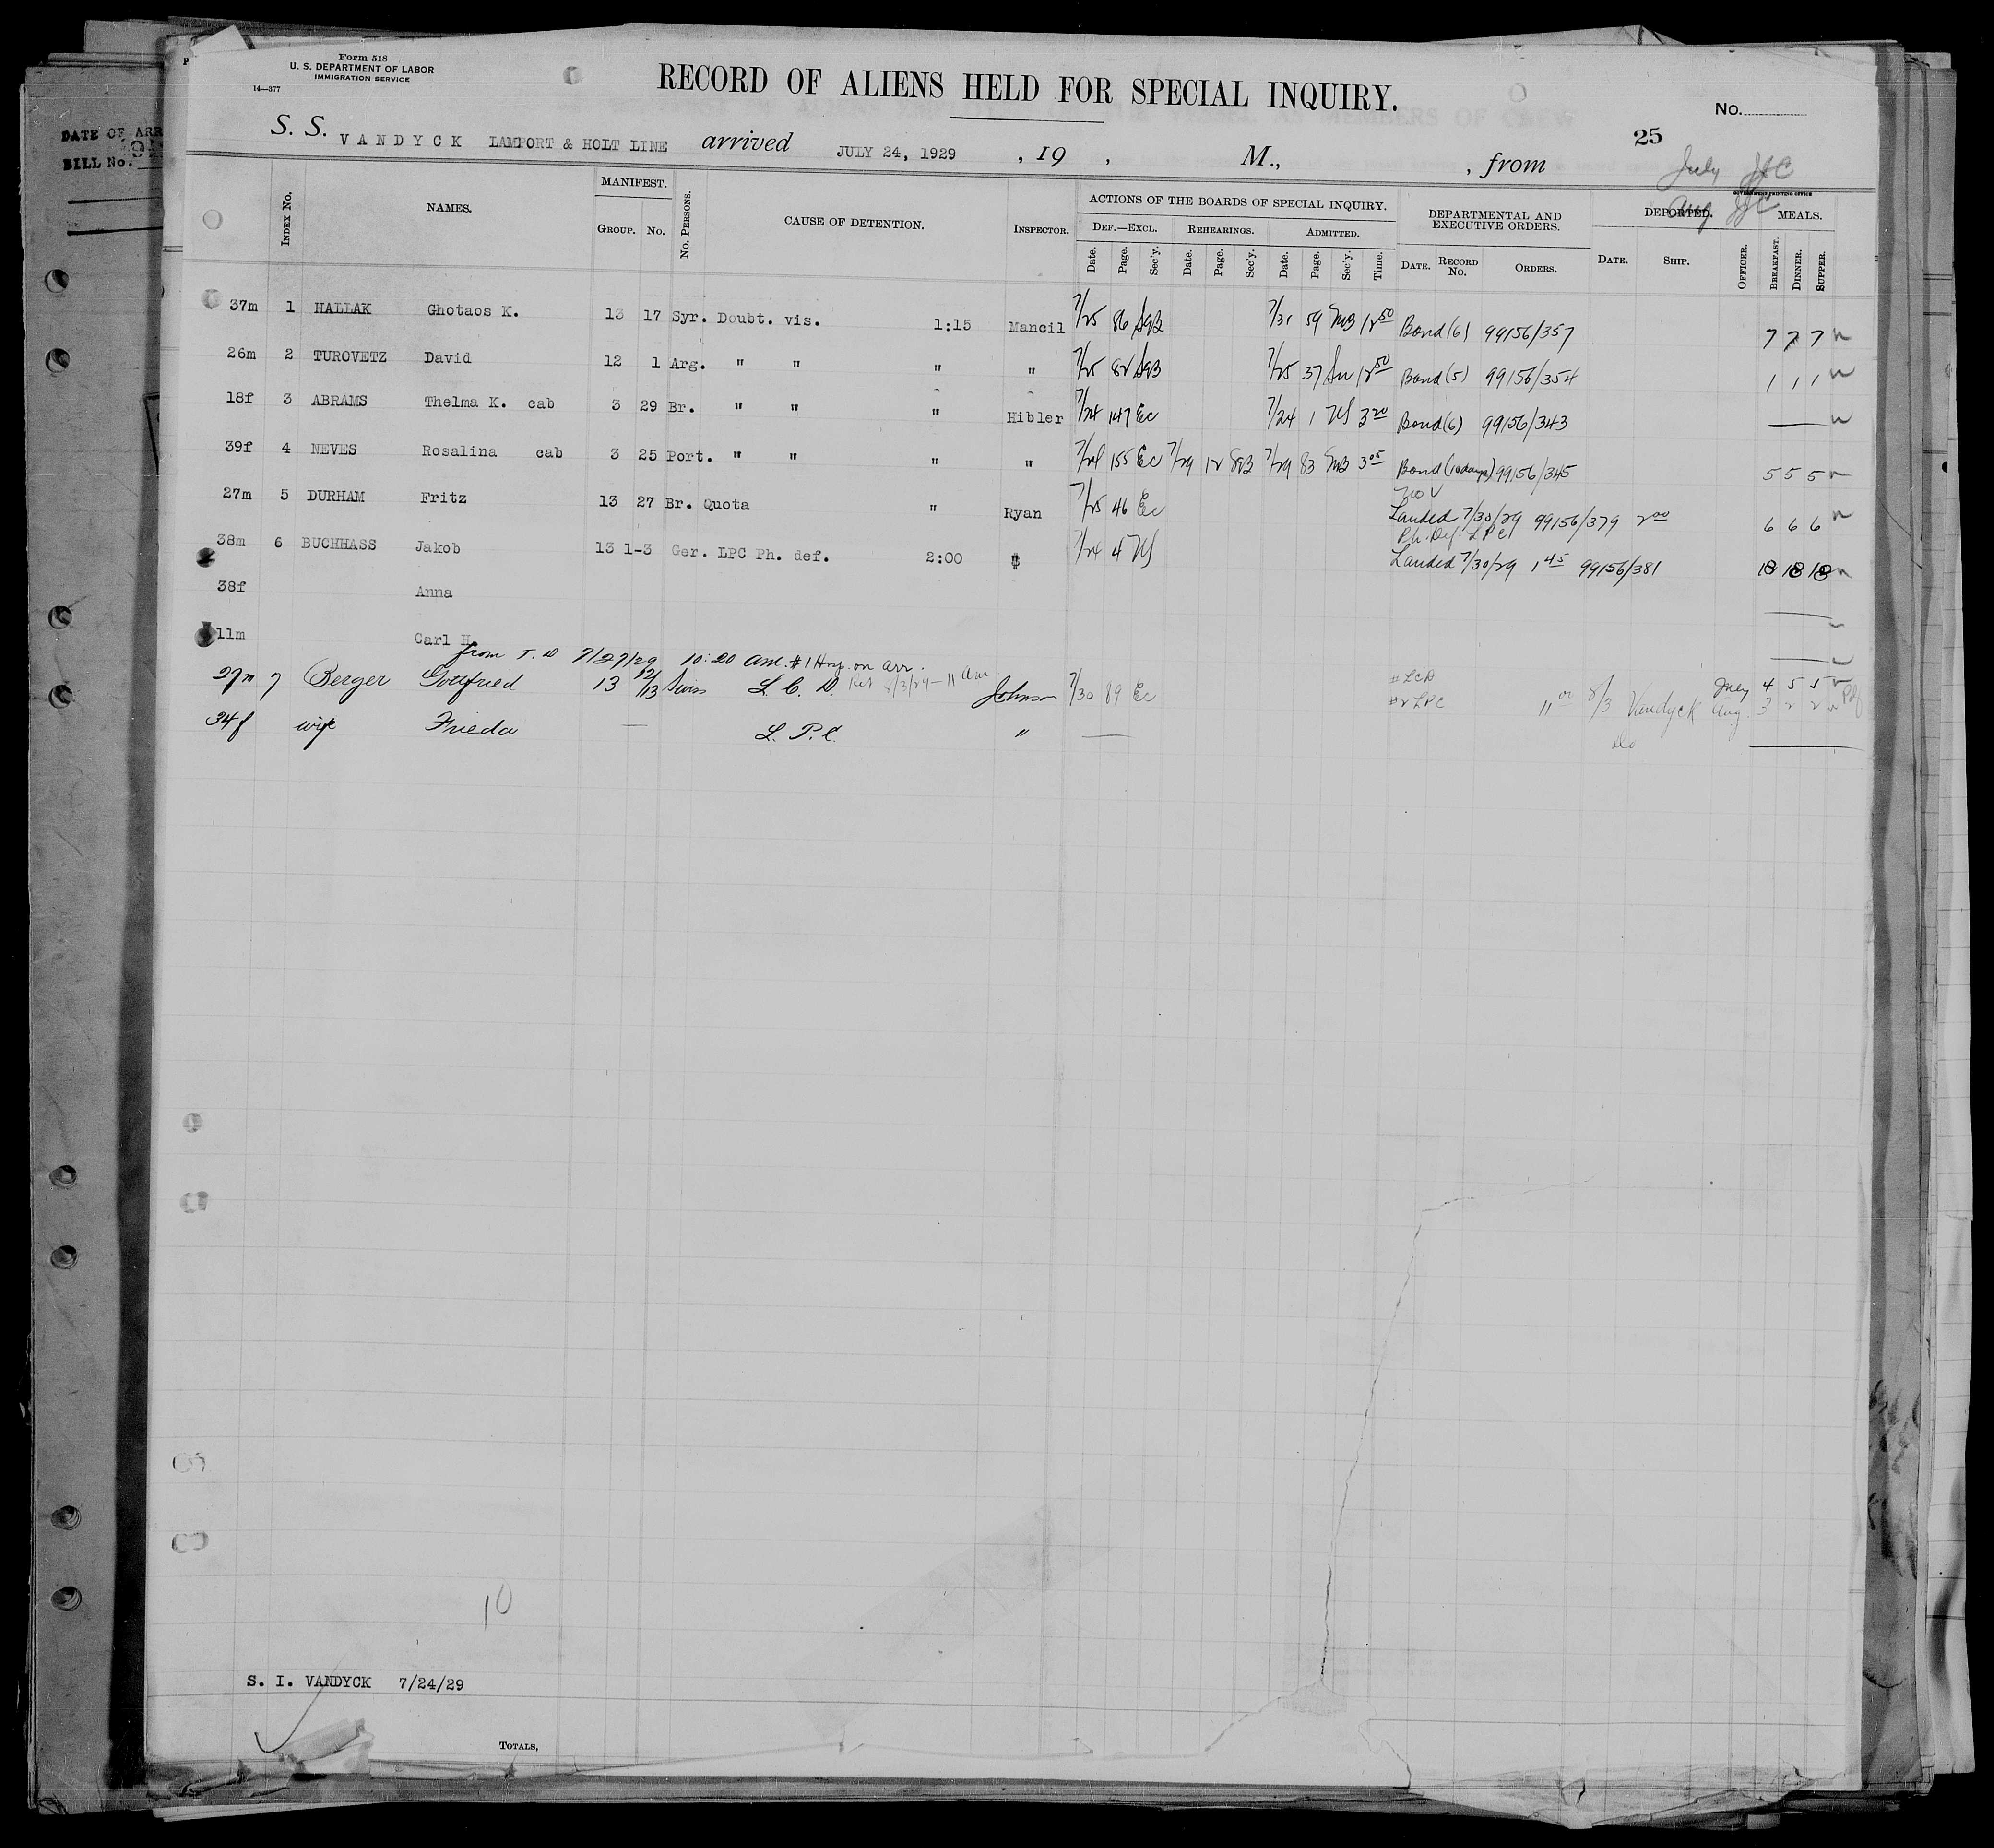 Form 518
U. S. DEPARTMENT OF LABOR
IMMIGRATION SERVICE
14—377
RECORD OF ALIENS HELD FOR SPECIAL INQUIRY.
No.
25
DATE OF ARR
BILL No.
S. S. VANDYCK LAMPORT & HOLT LINE arrived JULY 24, 1929 , 19 , M., , from
July
Aug
GOVERNMENT PRINTING OFFICE
INDEX No. NAMES. MANIFEST. GROUP. No. No. PERSONS. CAUSE OF DETENTION. INSPECTOR. ACTIONS OF THE BOARDS OF SPECIAL INQUIRY. DEPARTMENTAL AND EXECUTIVE ORDERS. DEPORTED. MEALS.
DEF.—EXCL. REHEARINGS. ADMITTED.
Date. Page. Sec'y. Date. Page. Sec'y. Date. Page. Sec'y. Time. DATE. RECORD No. ORDERS. DATE. SHIP. OFFICER. BREAKFAST. DINNER. SUPPER.
37m 1 HALLAK Ghotaos K. 13 17 Syr. Doubt. vis. 1:15 Mancil 7/25 86 SgB 7/31 59 MB 12 50 Bond (6) 99156/357 7 7 7
26m 2 TUROVETZ David 12 1 Arg. " " " " 7/25 82 SgB 7/25 37 12 50 Bond (5) 99156/354 1 1 1
18f 3 ABRAMS Thelma K. cab 3 29 Br. " " " Hibler 7/24 147 Ec 7/24 1 3 20 Bond (6) 99156/343
39f 4 NEVES Rosalina cab 3 25 Port. " " " " 7/24 155 Ec 7/29 12 SgB 7/29 83 MB 3 05 Bond (10 days) 99156/345 5 5 5
27m 5 DURHAM Fritz 13 27 Br. Quota " Ryan 7/25 46 Ec Landed 7/30/29 99156/379 2 00 6 6 6
Ph. Def. LPC
38m 6 BUCHHASS Jakob 13 1-3 Ger. LPC Ph. def. 2:00 7/24 4 Landed 7/30/29 1 45 99156/381 18 18 18
38f Anna
11m Carl H.
from T. D 7/27/29 10:20 am. #1 Hosp. on arr.
27m 7 Berger Gottfried 13 12/13 Swiss L. C. D. 8/3/29 - 11 am Johnson 7/30 89 Ec #1 LCD July 4 5 5
#2 LPC 11 00 8/3 Vandyck Aug. 3 2 2
34f wife Frieda — L. P. C. " — Do
10
S. I. VANDYCK 7/24/29
TOTALS,